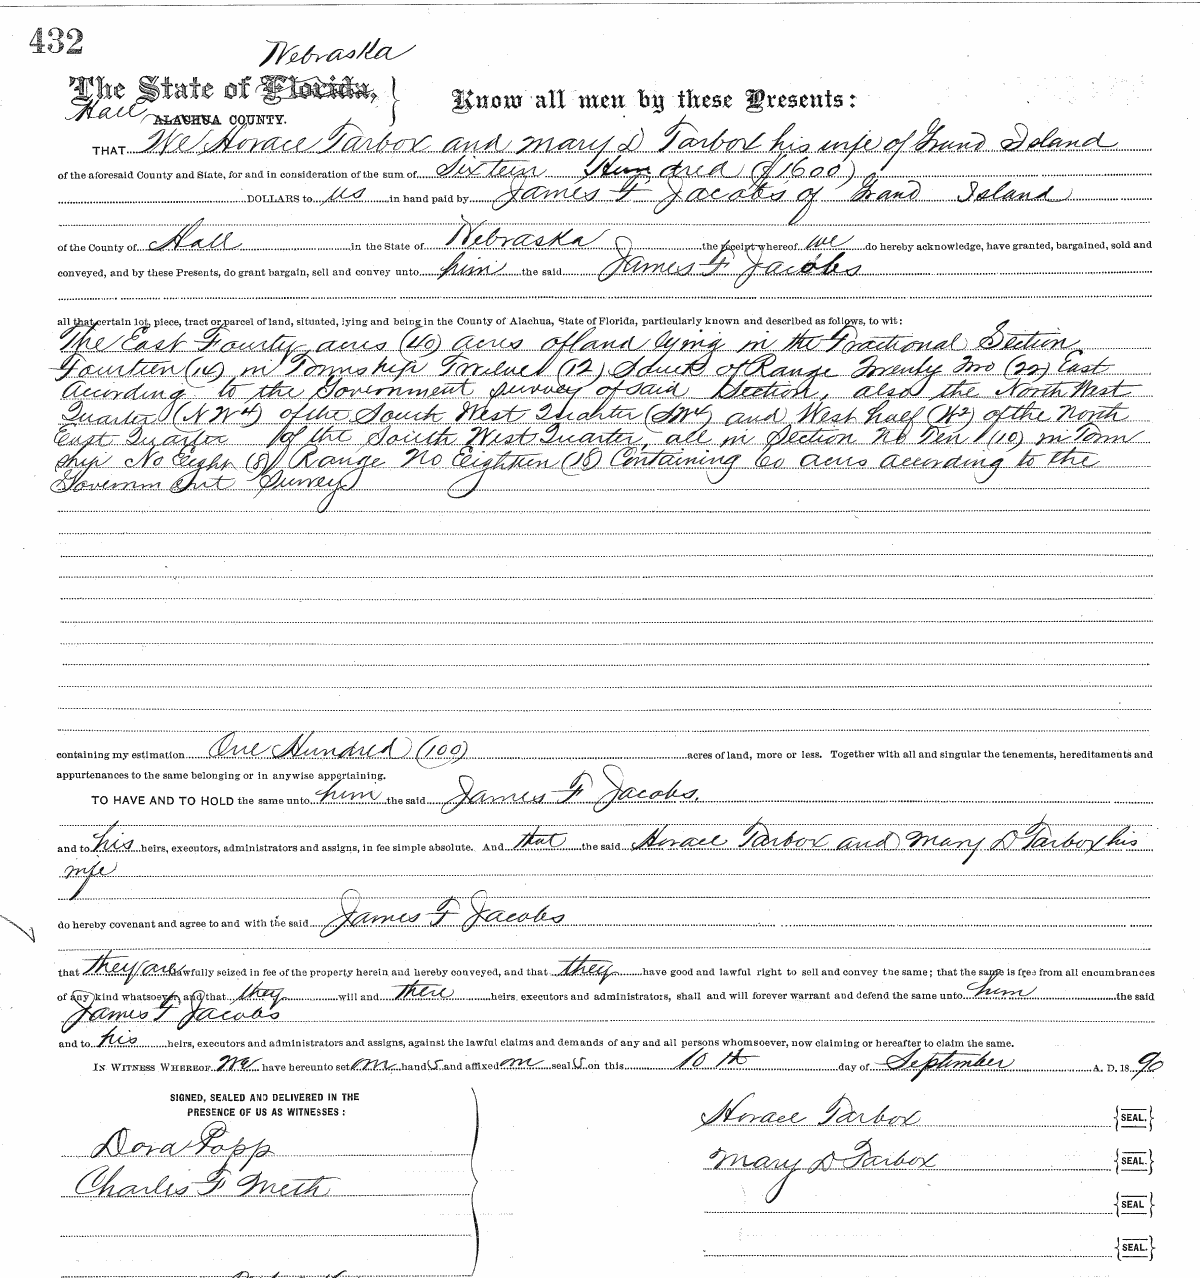 432
Nebraska
The State of Florida,
Hall
ALACHUA COUNTY.
Know all men by these Presents:
THAT We Horace Tarbox and Mary D Tarbox his wife of Grand Island
of the aforesaid County and State, for and in consideration of the sum of Sixteen Hundred ($1600)
DOLLARS to us in hand paid by James F Jacobs of Grand Island
of the County of Hall in the State of Nebraska the receipt whereof we do hereby acknowledge, have granted, bargained, sold and
conveyed, and by these Presents, do grant bargain, sell and convey unto him the said James F Jacobs
all that certain lot, piece, tract or parcel of land, situated, lying and being in the County of Alachua, State of Florida, particularly known and described as follows, to wit:
The East Fourty acres (40) acres of land lying in the Fractional Section
Fourteen (14) in Township Twelve (12) South of Range Twenty Two (22) East
according to the Government survey of said Section, also the North West
Quarter (NW4) of the South West Quarter (SW4) and West half (W2) of the North
East Quarter of the South West Quarter, all in Section No Ten (10) in Town
ship No Eight (8) Range No Eighteen (18) Containing 60 acres according to the
Government Survey
containing my estimation One Hundred (100) acres of land, more or less. Together with all and singular the tenements, hereditaments and
appurtenances to the same belonging or in anywise appertaining.
TO HAVE AND TO HOLD the same unto him the said James F Jacobs.
and to his heirs, executors, administrators and assigns, in fee simple absolute. And that the said Horace Tarbox and Mary D Tarbox his
wife
do hereby covenant and agree to and with the said James F Jacobs
that they are lawfully seized in fee of the property herein and hereby conveyed, and that they have good and lawful right to sell and convey the same; that the same is free from all encumbrances
of any kind whatsoever, and that they will and there heirs, executors and administrators, shall and will forever warrant and defend the same unto him the said
James F Jacobs
and to his heirs, executors and administrators and assigns, against the lawful claims and demands of any and all persons whomsoever, now claiming or hereafter to claim the same.
IN WITNESS WHEREOF We have hereunto set our hand s and affixed our seal s on this 10th day of September A. D. 18 90
SIGNED, SEALED AND DELIVERED IN THE
PRESENCE OF US AS WITNESSES:
Dora Popp
Charles F
Horace Tarbox SEAL.
Mary D Tarbox SEAL.
SEAL
SEAL.